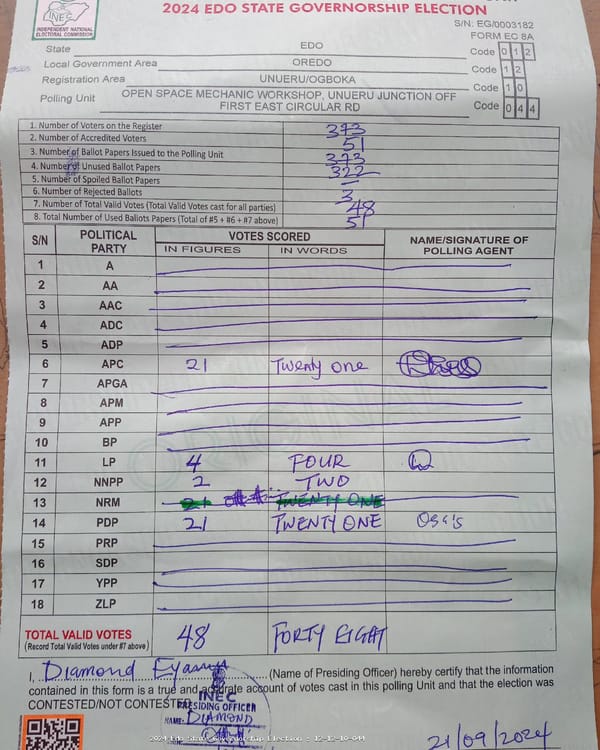 2024 EDO STATE GOVERNORSHIP ELECTION
INEC
INDEPENDENT NATIONAL
ELECTORAL COMMISSION
S/N: EG/0003182
FORM EC 8A
State EDO Code 0 1 2
Local Government Area OREDO Code 1 2
Registration Area UNUERU/OGBOKA Code 1 0
Polling Unit OPEN SPACE MECHANIC WORKSHOP, UNUERU JUNCTION OFF
FIRST EAST CIRCULAR RD Code 0 4 4
1. Number of Voters on the Register 373
2. Number of Accredited Voters 51
3. Number of Ballot Papers Issued to the Polling Unit 373
4. Number of Unused Ballot Papers 322
5. Number of Spoiled Ballot Papers –
6. Number of Rejected Ballots 3
7. Number of Total Valid Votes (Total Valid Votes cast for all parties) 48
8. Total Number of Used Ballots Papers (Total of #5 + #6 + #7 above) 51
S/N POLITICAL PARTY VOTES SCORED NAME/SIGNATURE OF POLLING AGENT
IN FIGURES IN WORDS
1 A
2 AA
3 AAC
4 ADC
5 ADP
6 APC 21 Twenty one
7 APGA
8 APM
9 APP
10 BP
11 LP 4 FOUR
12 NNPP 2 TWO
13 NRM 21 TWENTY ONE
14 PDP 21 TWENTY ONE
15 PRP
16 SDP
17 YPP
18 ZLP
TOTAL VALID VOTES 48 FORTY EIGHT
(Record Total Valid Votes under #7 above)
I, Diamond (Name of Presiding Officer) hereby certify that the information
contained in this form is a true and accurate account of votes cast in this polling Unit and that the election was
CONTESTED/NOT CONTESTED
INEC
PRESIDING OFFICER
NAME: DIAMOND
21/09/2024